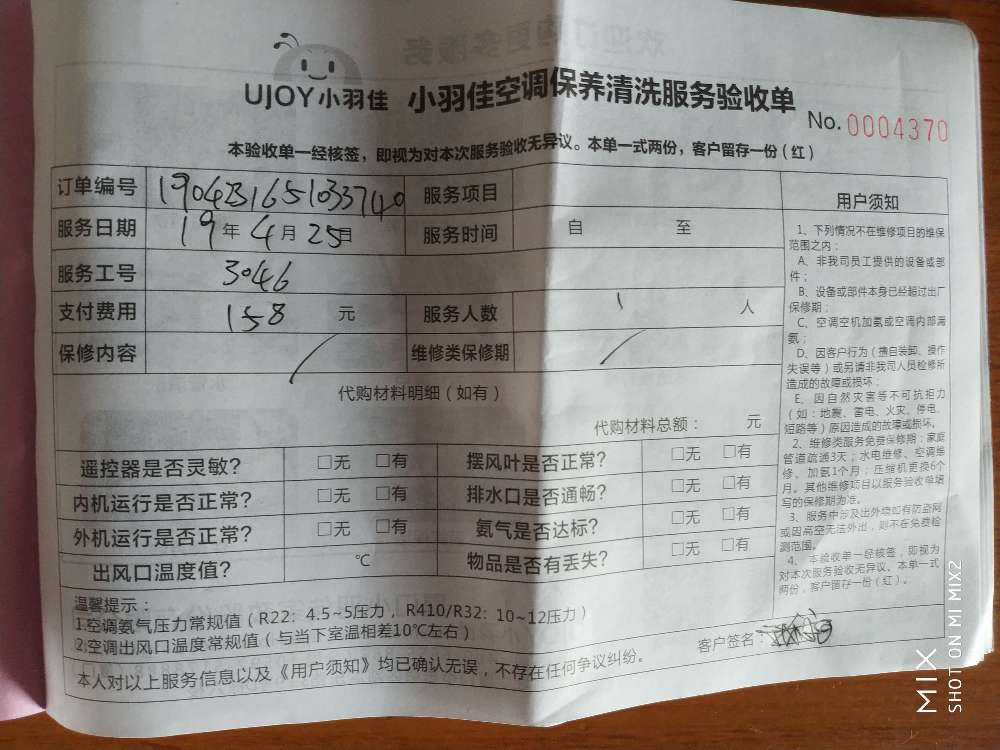 UJOY小羽佳 小羽佳空调保养清洗服务验收单
No. 0004370
本验收单一经核签，即视为对本次服务验收无异议。本单一式两份，客户留存一份（红）
订单编号 190423165103374 服务项目
服务日期 19年4月25日 服务时间 自 至
服务工号 3046
支付费用 158 元 服务人数 1 人
保修内容 / 维修类保修期 /
代购材料明细（如有）
代购材料总额： 元
遥控器是否灵敏？ □无 □有 摆风叶是否正常？ □无 □有
内机运行是否正常？ □无 □有 排水口是否通畅？ □无 □有
外机运行是否正常？ □无 □有 氨气是否达标？ □无 □有
出风口温度值？ ℃ 物品是否有丢失？ □无 □有
温馨提示：
1.空调氨气压力常规值（R22：4.5~5压力，R410/R32：10~12压力）
2.空调出风口温度常规值（与当下室温相差10℃左右）
客户签名：
本人对以上服务信息以及《用户须知》均已确认无误，不存在任何争议纠纷。
用户须知
1、下列情况不在维修项目的维保
范围之内：
A、非我司员工提供的设备或部
件；
B、设备或部件本身已经超过出厂
保修期；
C、空调空机加氨或空调内部漏
氨；
D、因客户行为（擅自装卸、操作
失误等）或另请非我司人员检修所
造成的故障或损坏；
E、因自然灾害等不可抗拒力
（如：地震、雷电、火灾、停电、
短路等）原因造成的故障或损坏。
2、维修类服务免费保修期：家庭
管道疏通3天；水电维修、空调维
修、加氨1个月；压缩机更换6个
月。其他维修项目以服务验收单填
写的保修期为准。
3、服务中涉及出外墙如有防盗网
或因高空无法外出，则不在免费检
测范围。
4、本验收单一经核签，即视为
对本次服务验收无异议。本单一式
两份，客户留存一份（红）。
MIX
SHOT ON MI MIX2